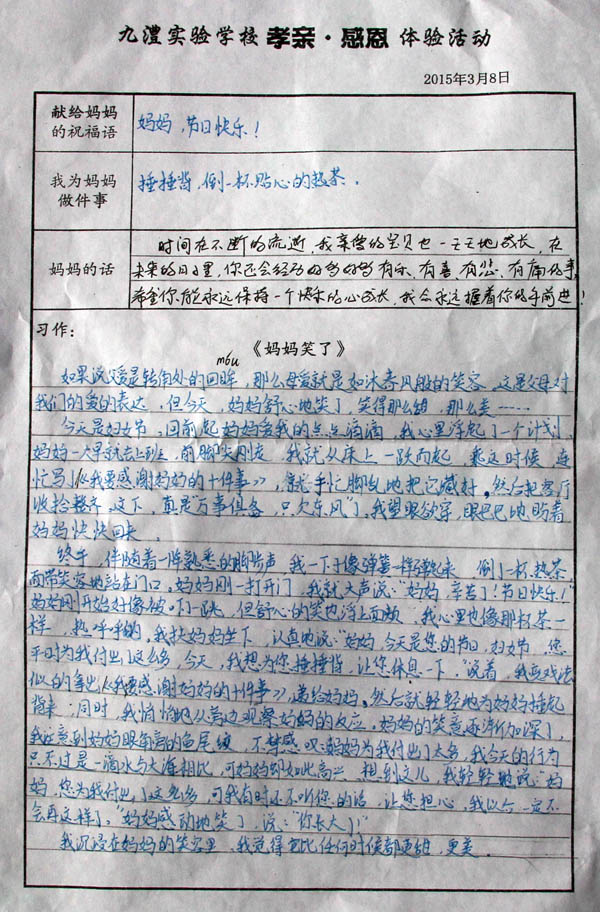 九澧实验学校 孝亲·感恩 体验活动
2015年3月8日
献给妈妈
的祝福语
妈妈,节日快乐!
我为妈妈
做件事
捶捶背,倒一杯贴心的热茶。
妈妈的话
时间在不断的流逝,我亲爱的宝贝也一天天地成长,在
未来的日子里,你还会经历好多好多有乐、有喜、有悲、有痛的事,
希望你能永远保持一个快乐的心成长,我会永远握着你的手前进!
习作:
《妈妈笑了》
móu
如果说爱是转角处的回眸,那么母爱就是如沐春风般的笑容,这是父母对
我们的爱的表达,但今天,妈妈舒心地笑了,笑得那么甜,那么美……
今天是妇女节,回想起妈妈爱我的点点滴滴,我心里浮起了一个计划,
妈妈一早就去上班,前脚刚走,我就从床上一跃而起,乘这时候,连
忙写《我要感谢妈妈的十件事》,手忙脚乱地把它藏好。然后把客厅
收拾整齐。这下,真是"万事俱备,只欠东风"了,我望眼欲穿,眼巴巴地盼着
妈妈快快回来。
终于,伴随着一阵熟悉的脚步声,我一下子像弹簧一样弹起来,倒了一杯热茶
面带笑容地站在门口,妈妈刚一打开门,我就大声说:"妈妈,辛苦了!节日快乐!"
妈妈刚开始好像被吓了一跳,但舒心的笑也浮上面颊,我心里也像那杯茶一
样,热呼呼的,我扶妈妈坐下,认真地说:"妈妈,今天是您的节日,妇女节,您
平时为我付出了这么多,今天,我想为您捶捶背,让您休息一下。"说着,我变戏法
似的拿出《我要感谢妈妈的十件事》,递给妈妈。然后就轻轻地为妈妈捶起
背来;同时,我悄悄地从旁边观察妈妈的反应,妈妈的笑意逐渐加深了,
我注意到妈妈眼角旁的鱼尾纹,不禁感叹:妈妈为我付出了太多,我今天的行为
只不过是一滴水与大海相比,可妈妈却如此高兴,想到这儿,我轻轻地说:"妈
妈,您为我付出了这么多,可我有时还不听你的话,让您担心,我以后一定不
会再这样了。"妈妈感动地笑了,说:"你长大了!"
我沉浸在妈妈的笑容里,我觉得它比任何时候都更甜,更美。